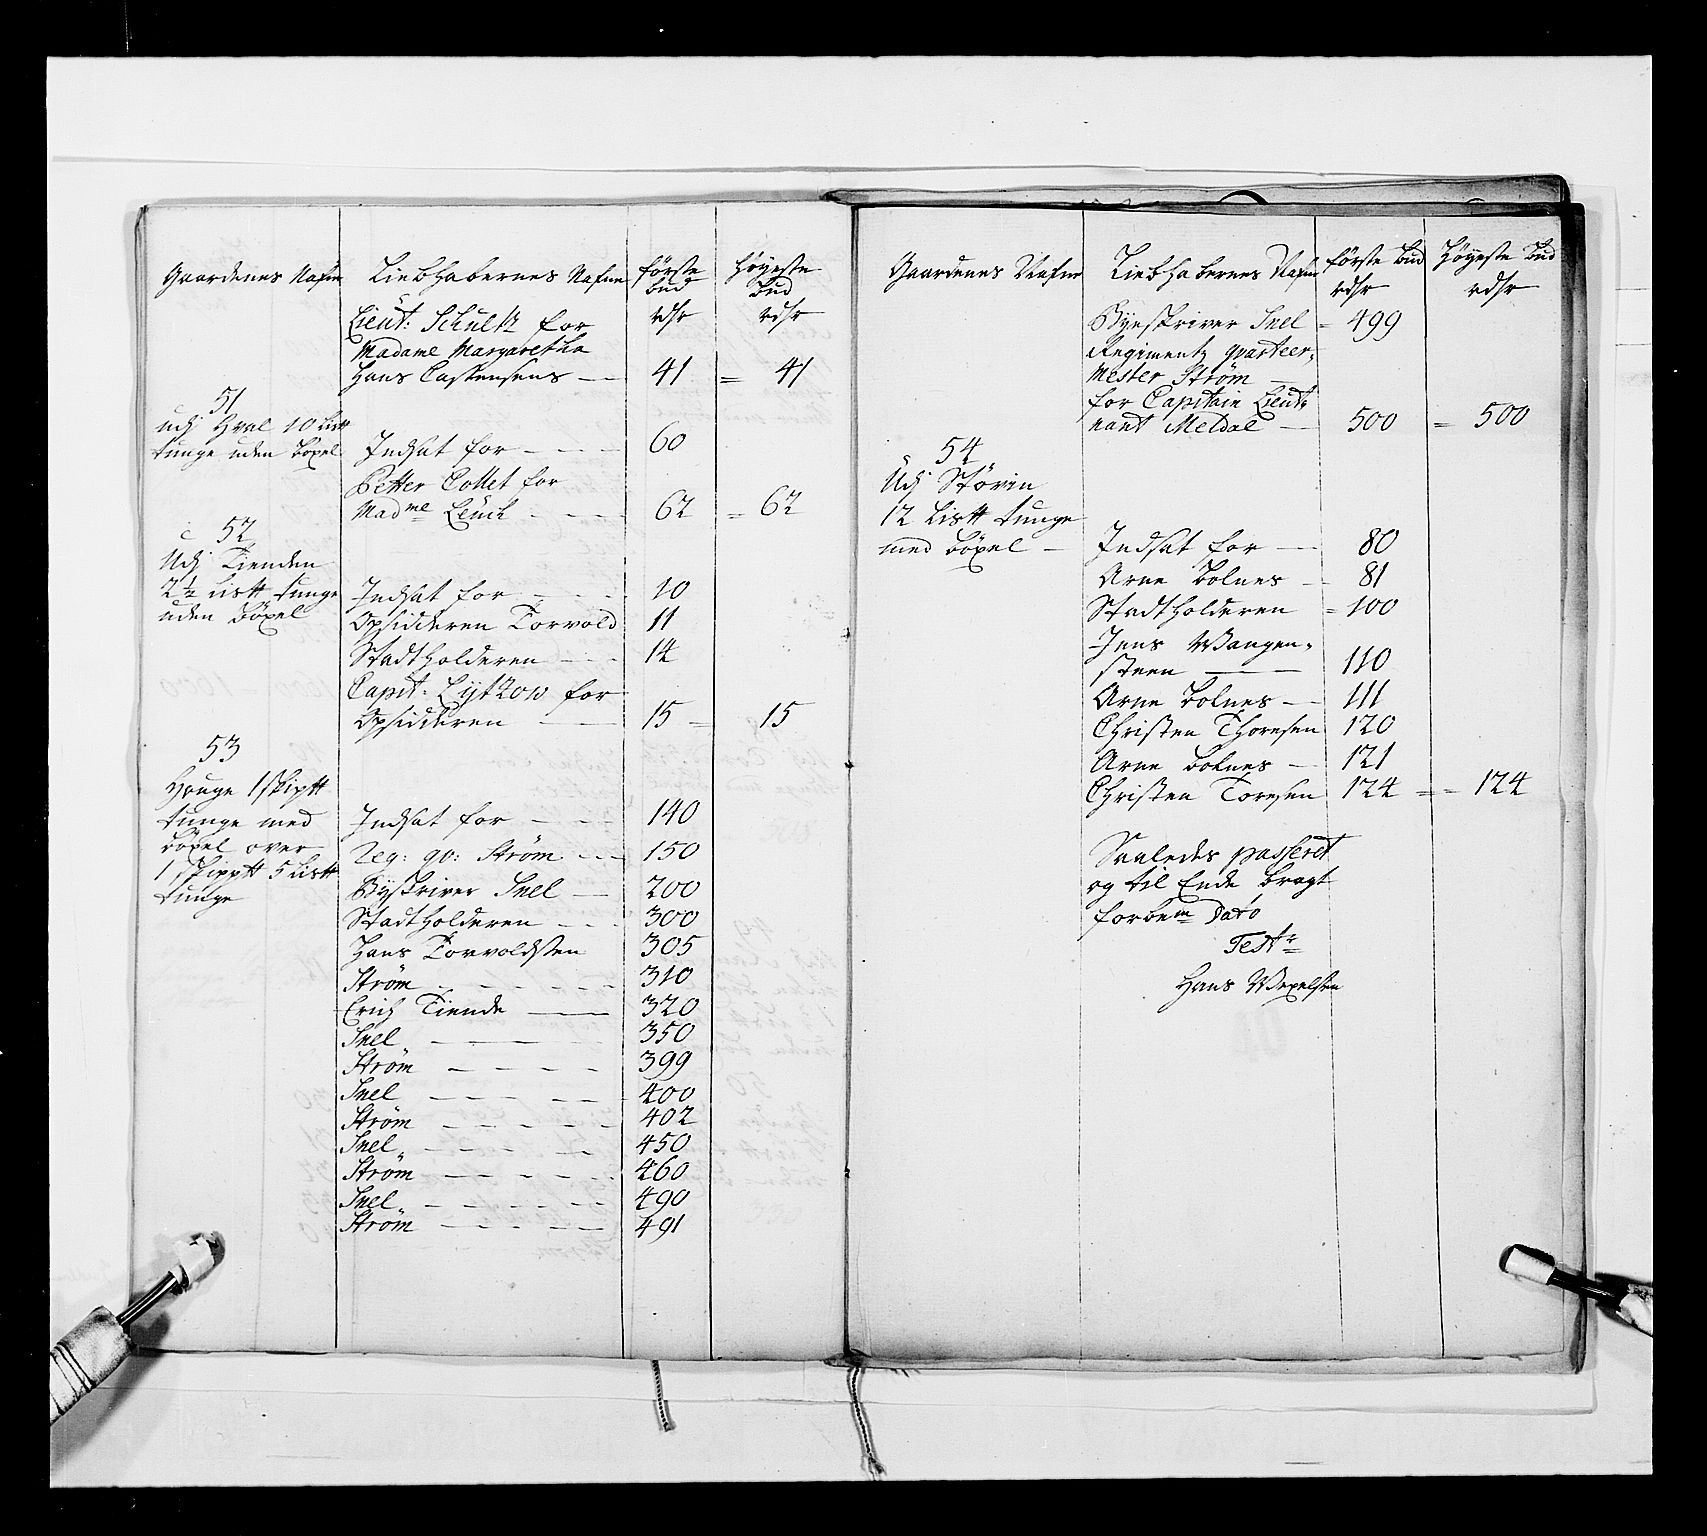 Gaardenes Nafne Liebhabernes Nafne første bud rdlr høyeste bud rdlr
Lieut: Schultz for
Madame Margaretha
Hans Caspersens — 41 = 41
51
udj Hval 10 Lis℔
tunge uden böxel Indsat for — 60
Petter Collet for
Madme Leuch — 62 = 62
52
Udj Tienden
2½ Lis℔ tunge Indsat for — 10
uden böxel Opsidderen Torvold 11
Stadtholderen — 14
Capit: Lytzow for
Opsidderen — 15 = 15
53
Houge 1 skip℔
tunge med Indsat for — 140
böxel over Reg: qv: Strøm — 150
1 skipp℔ 5 Lis℔ Byskriver Snel — 200
tunge
Stadtholderen — 300
Hans Torvoldsen 305
Strøm — 310
Erich Tiende — 320
Snel — 350
Strøm — 399
Snel — 400
Strøm — 402
Snel — 450
Strøm — 460
Snel — 490
Strøm — 491
Gaardenes Nafne Liebhabernes Nafne første bud rdlr høyeste bud rdlr
Byeskriver Snel = 499
Regimentz qvarteer,
Mester Strøm
for Capitain Lieut:
nant Meldal — 500 = 500
54
Udj Störin
12 Lis℔ tunge
med böxel — Indsat for — 80
Arne Bolnes — 81
Stadtholderen = 100
Jens Wangen,
steen — 110
Arne Bolnes — 111
Christen Thoresen 120
Arne Bolnes — 121
Christen Toresen 124 = 124
Saaledes passeret
og til Ende bragt
forbem Dato
Test
Hans Wexelsen